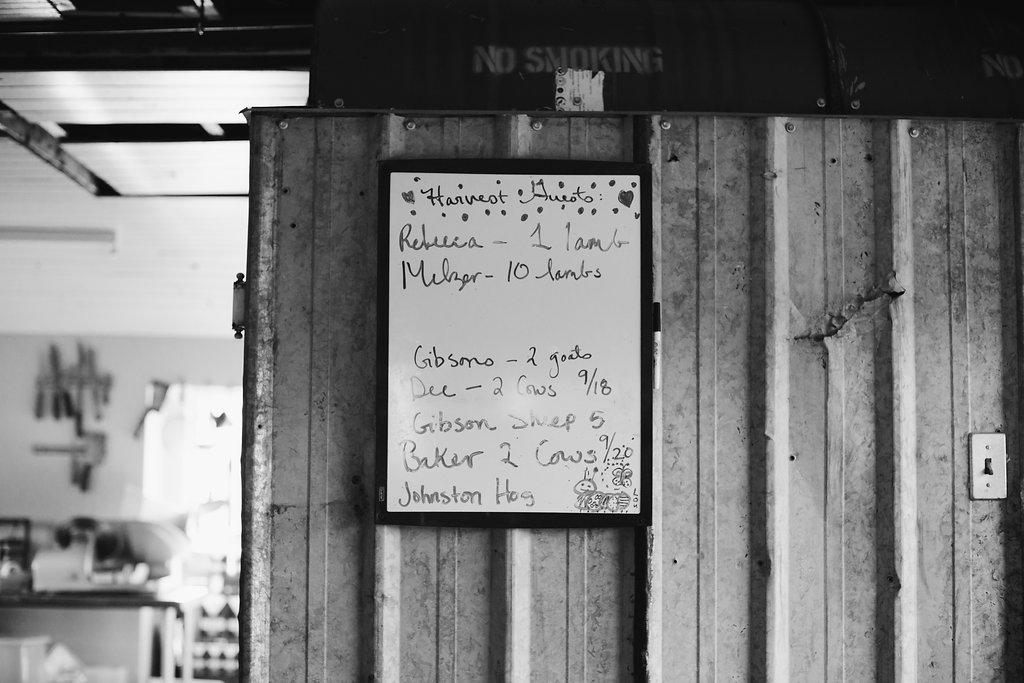 NO SMOKING
NO
Harvest Guests:
Rebecca - 1 lamb
Melzer - 10 lambs
Gibsons - 2 goats
Dee - 2 Cows 9/18
Gibson Sheep 5
Baker 2 Cows 9/20
Johnston Hog